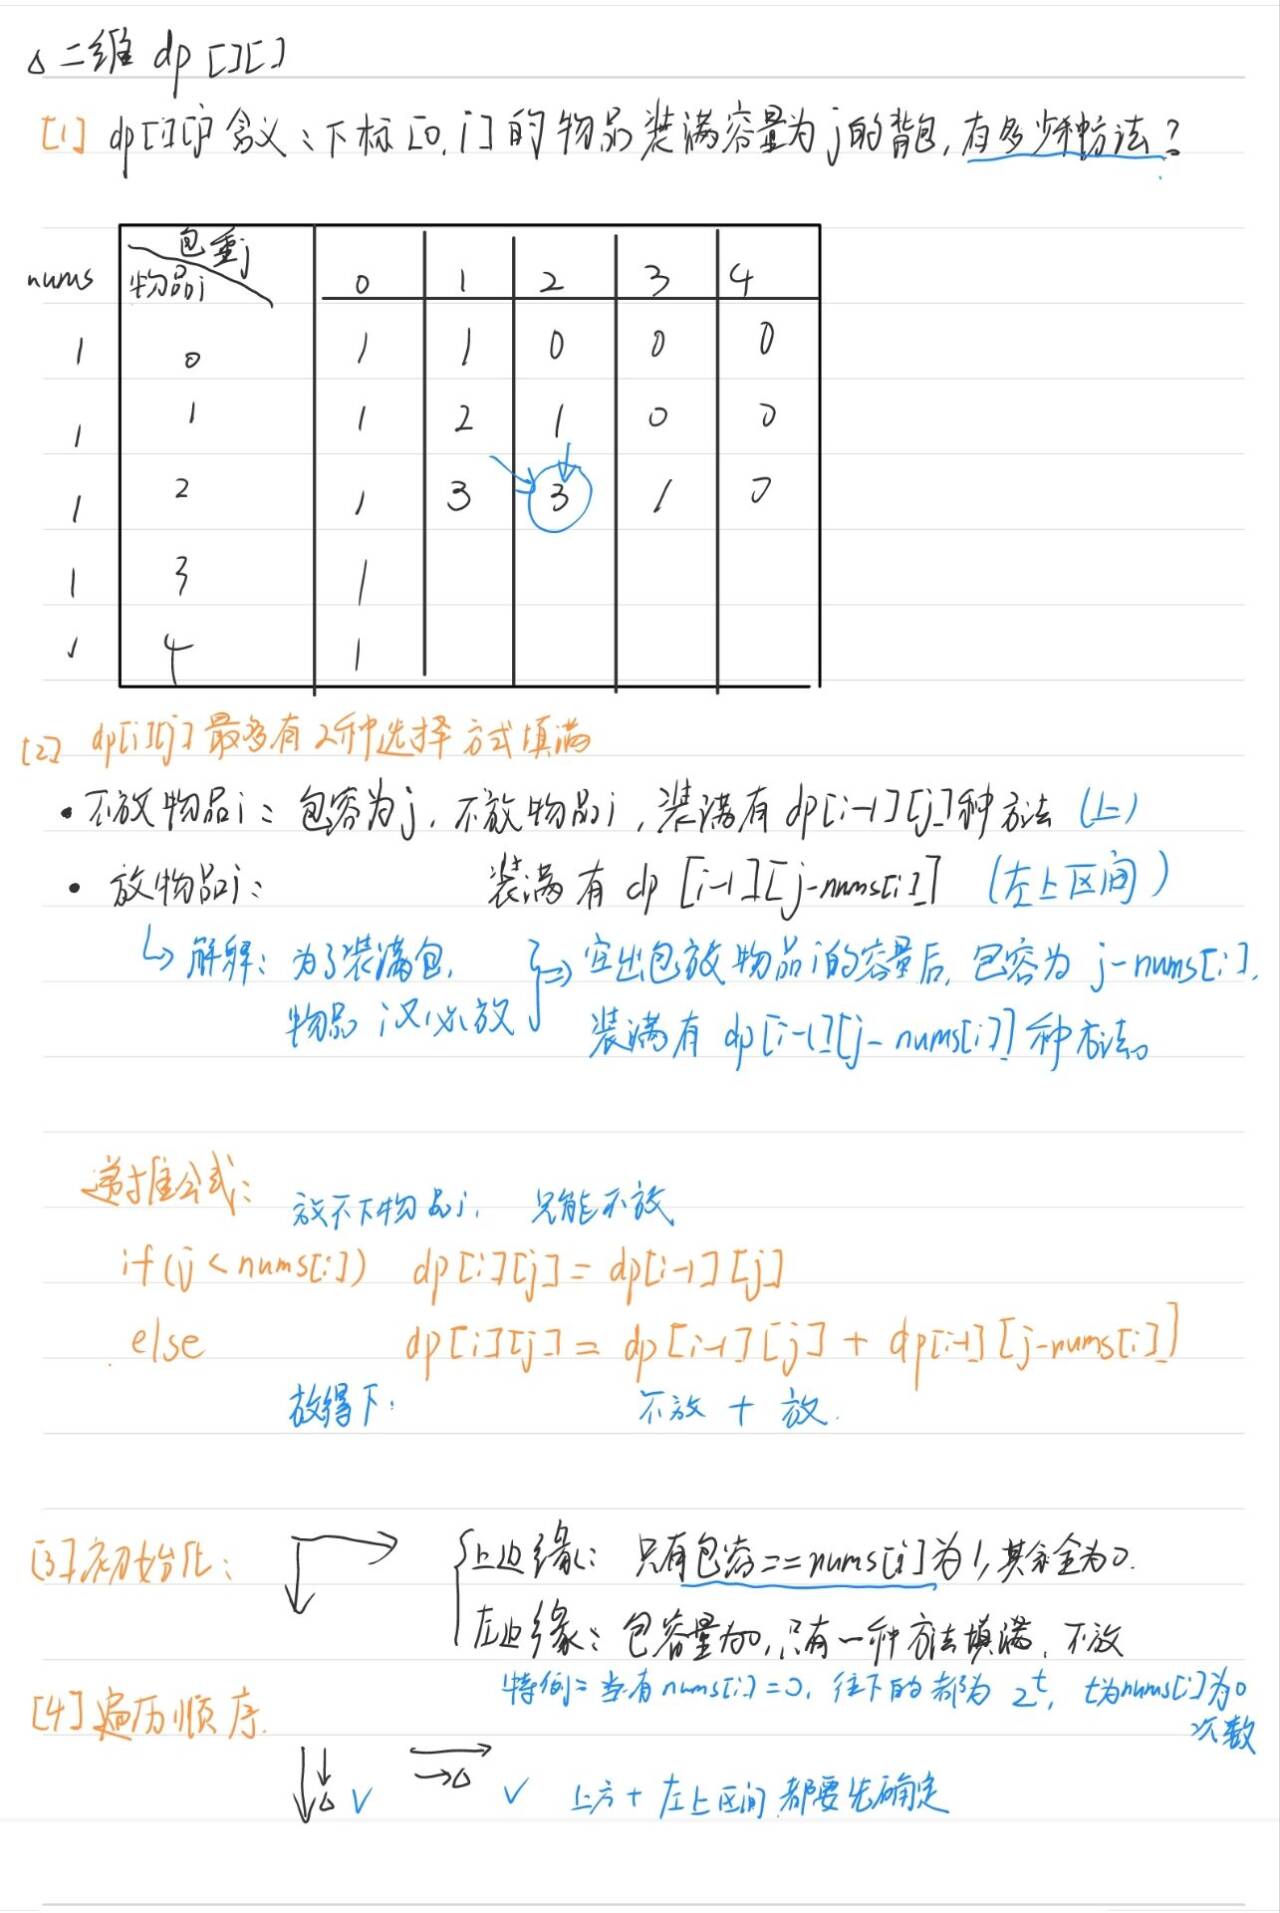 △ 二维 dp[][]
[1] dp[i][j] 含义：下标[0, i]的物品装满容量为j的背包, 有多少种方法？
包重j
nums 物品i 0 1 2 3 4
1 0 1 1 0 0 0
1 1 1 2 1 0 0
1 2 1 3 3 1 0
1 3 1
1 4 1
[2] dp[i][j] 最多有2种选择方式填满
• 不放物品i：包容为j, 不放物品i, 装满有dp[i-1][j]种方法 (上)
• 放物品i： 装满有dp[i-1][j-nums[i]] (左上区间)
↳ 解释：为了装满包, } ⇒ 空出包放物品i的容量后, 包容为 j-nums[i],
物品i又必放 装满有dp[i-1][j-nums[i]]种方法。
递推公式：
放不下物品i, 只能不放
if(j<nums[i]) dp[i][j] = dp[i-1][j]
else dp[i][j] = dp[i-1][j] + dp[i-1][j-nums[i]]
放得下. 不放 + 放.
[3] 初始化： { 上边缘：只有包容==nums[i]为1, 其余全为0.
左边缘：包容量为0, 只有一种方法填满, 不放
特例：当有nums[i]=0, 往下的都为 2^t, t为nums[i]为0
次数
[4] 遍历顺序.
√ √ 上方+左上区间都要先确定